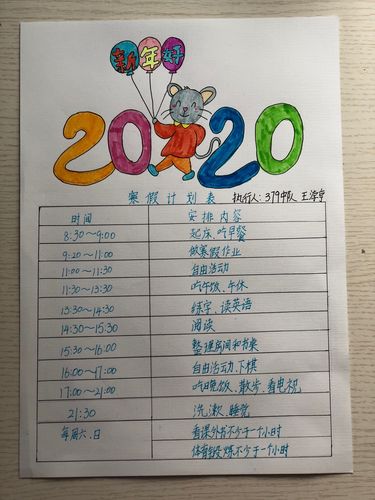 新年好
2020
寒假计划表 执行人:379中队 王泽宇
时间 安排内容
8:30~9:00 起床、吃早餐
9:20~11:00 做寒假作业
11:00~11:30 自由活动
11:30~13:30 吃午饭、午休
13:30~14:30 练字、读英语
14:30~15:30 阅读
15:30~16:00 整理房间和书桌
16:00~17:00 自由活动、下棋
17:00~21:00 吃晚饭、散步、看电视
21:30 洗漱、睡觉
每周六、日 看课外书不少于一个小时
体育锻炼不少于一个小时